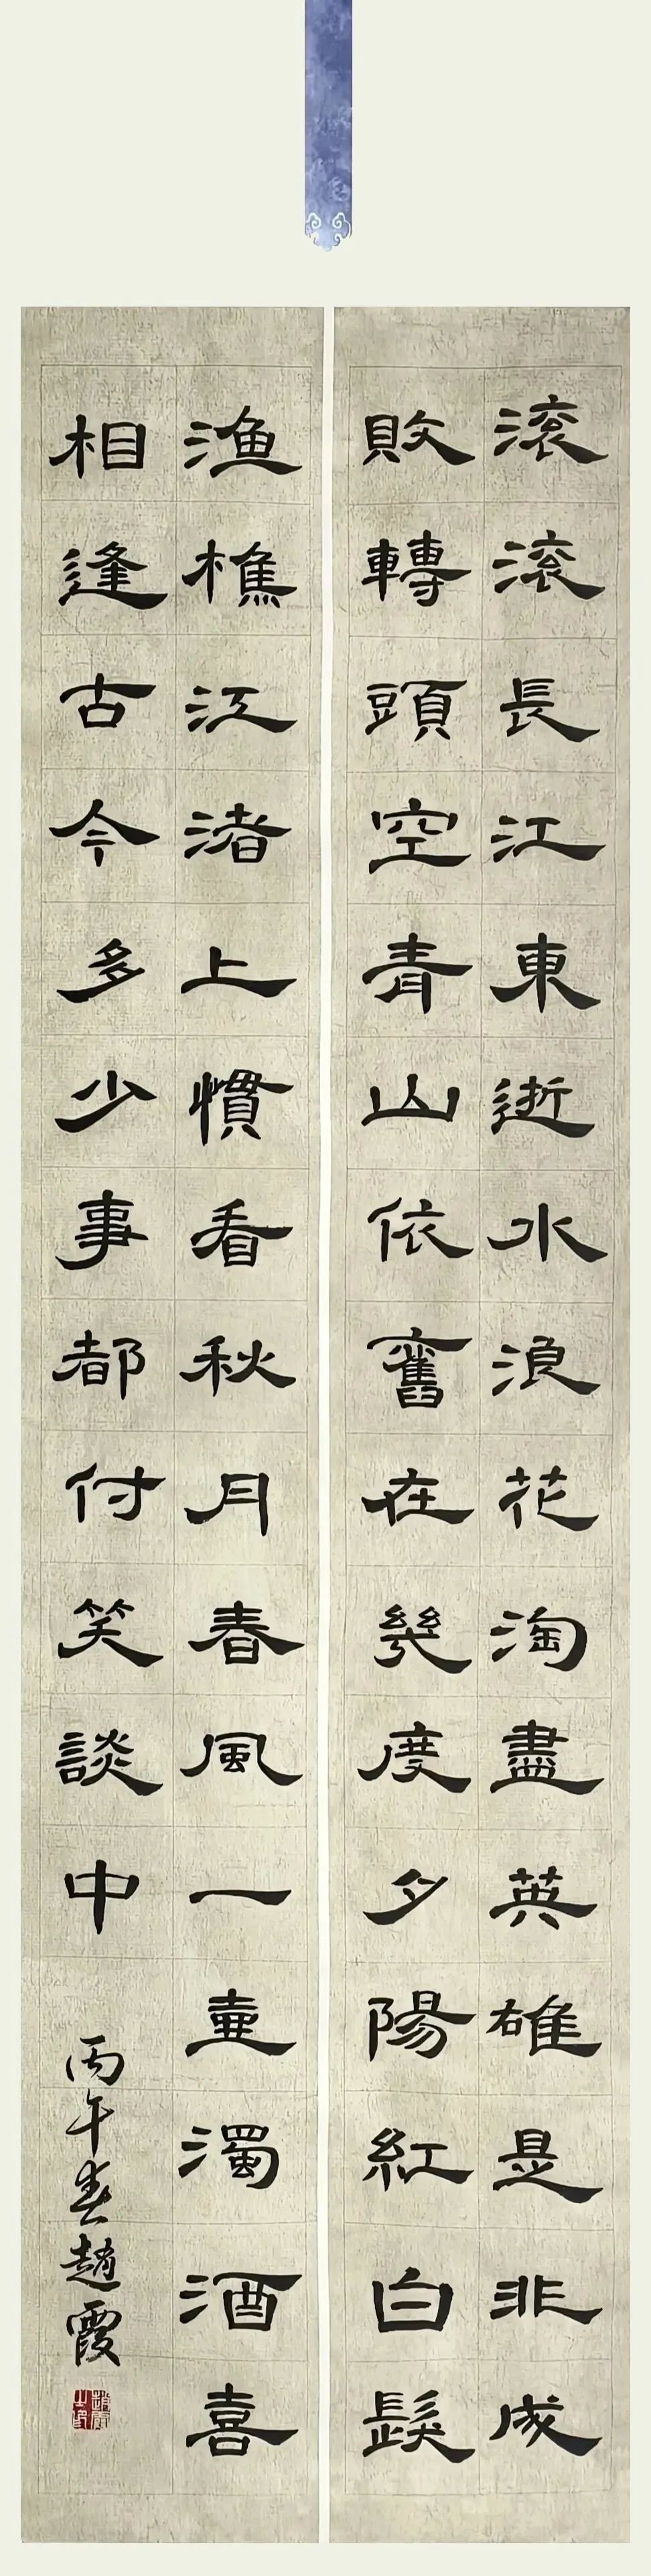 滾滾長江東逝水浪花淘盡英雄是非成
敗轉頭空青山依舊在幾度夕陽紅白髮
漁樵江渚上慣看秋月春風一壺濁酒喜
相逢古今多少事都付笑談中
丙午春趙霞